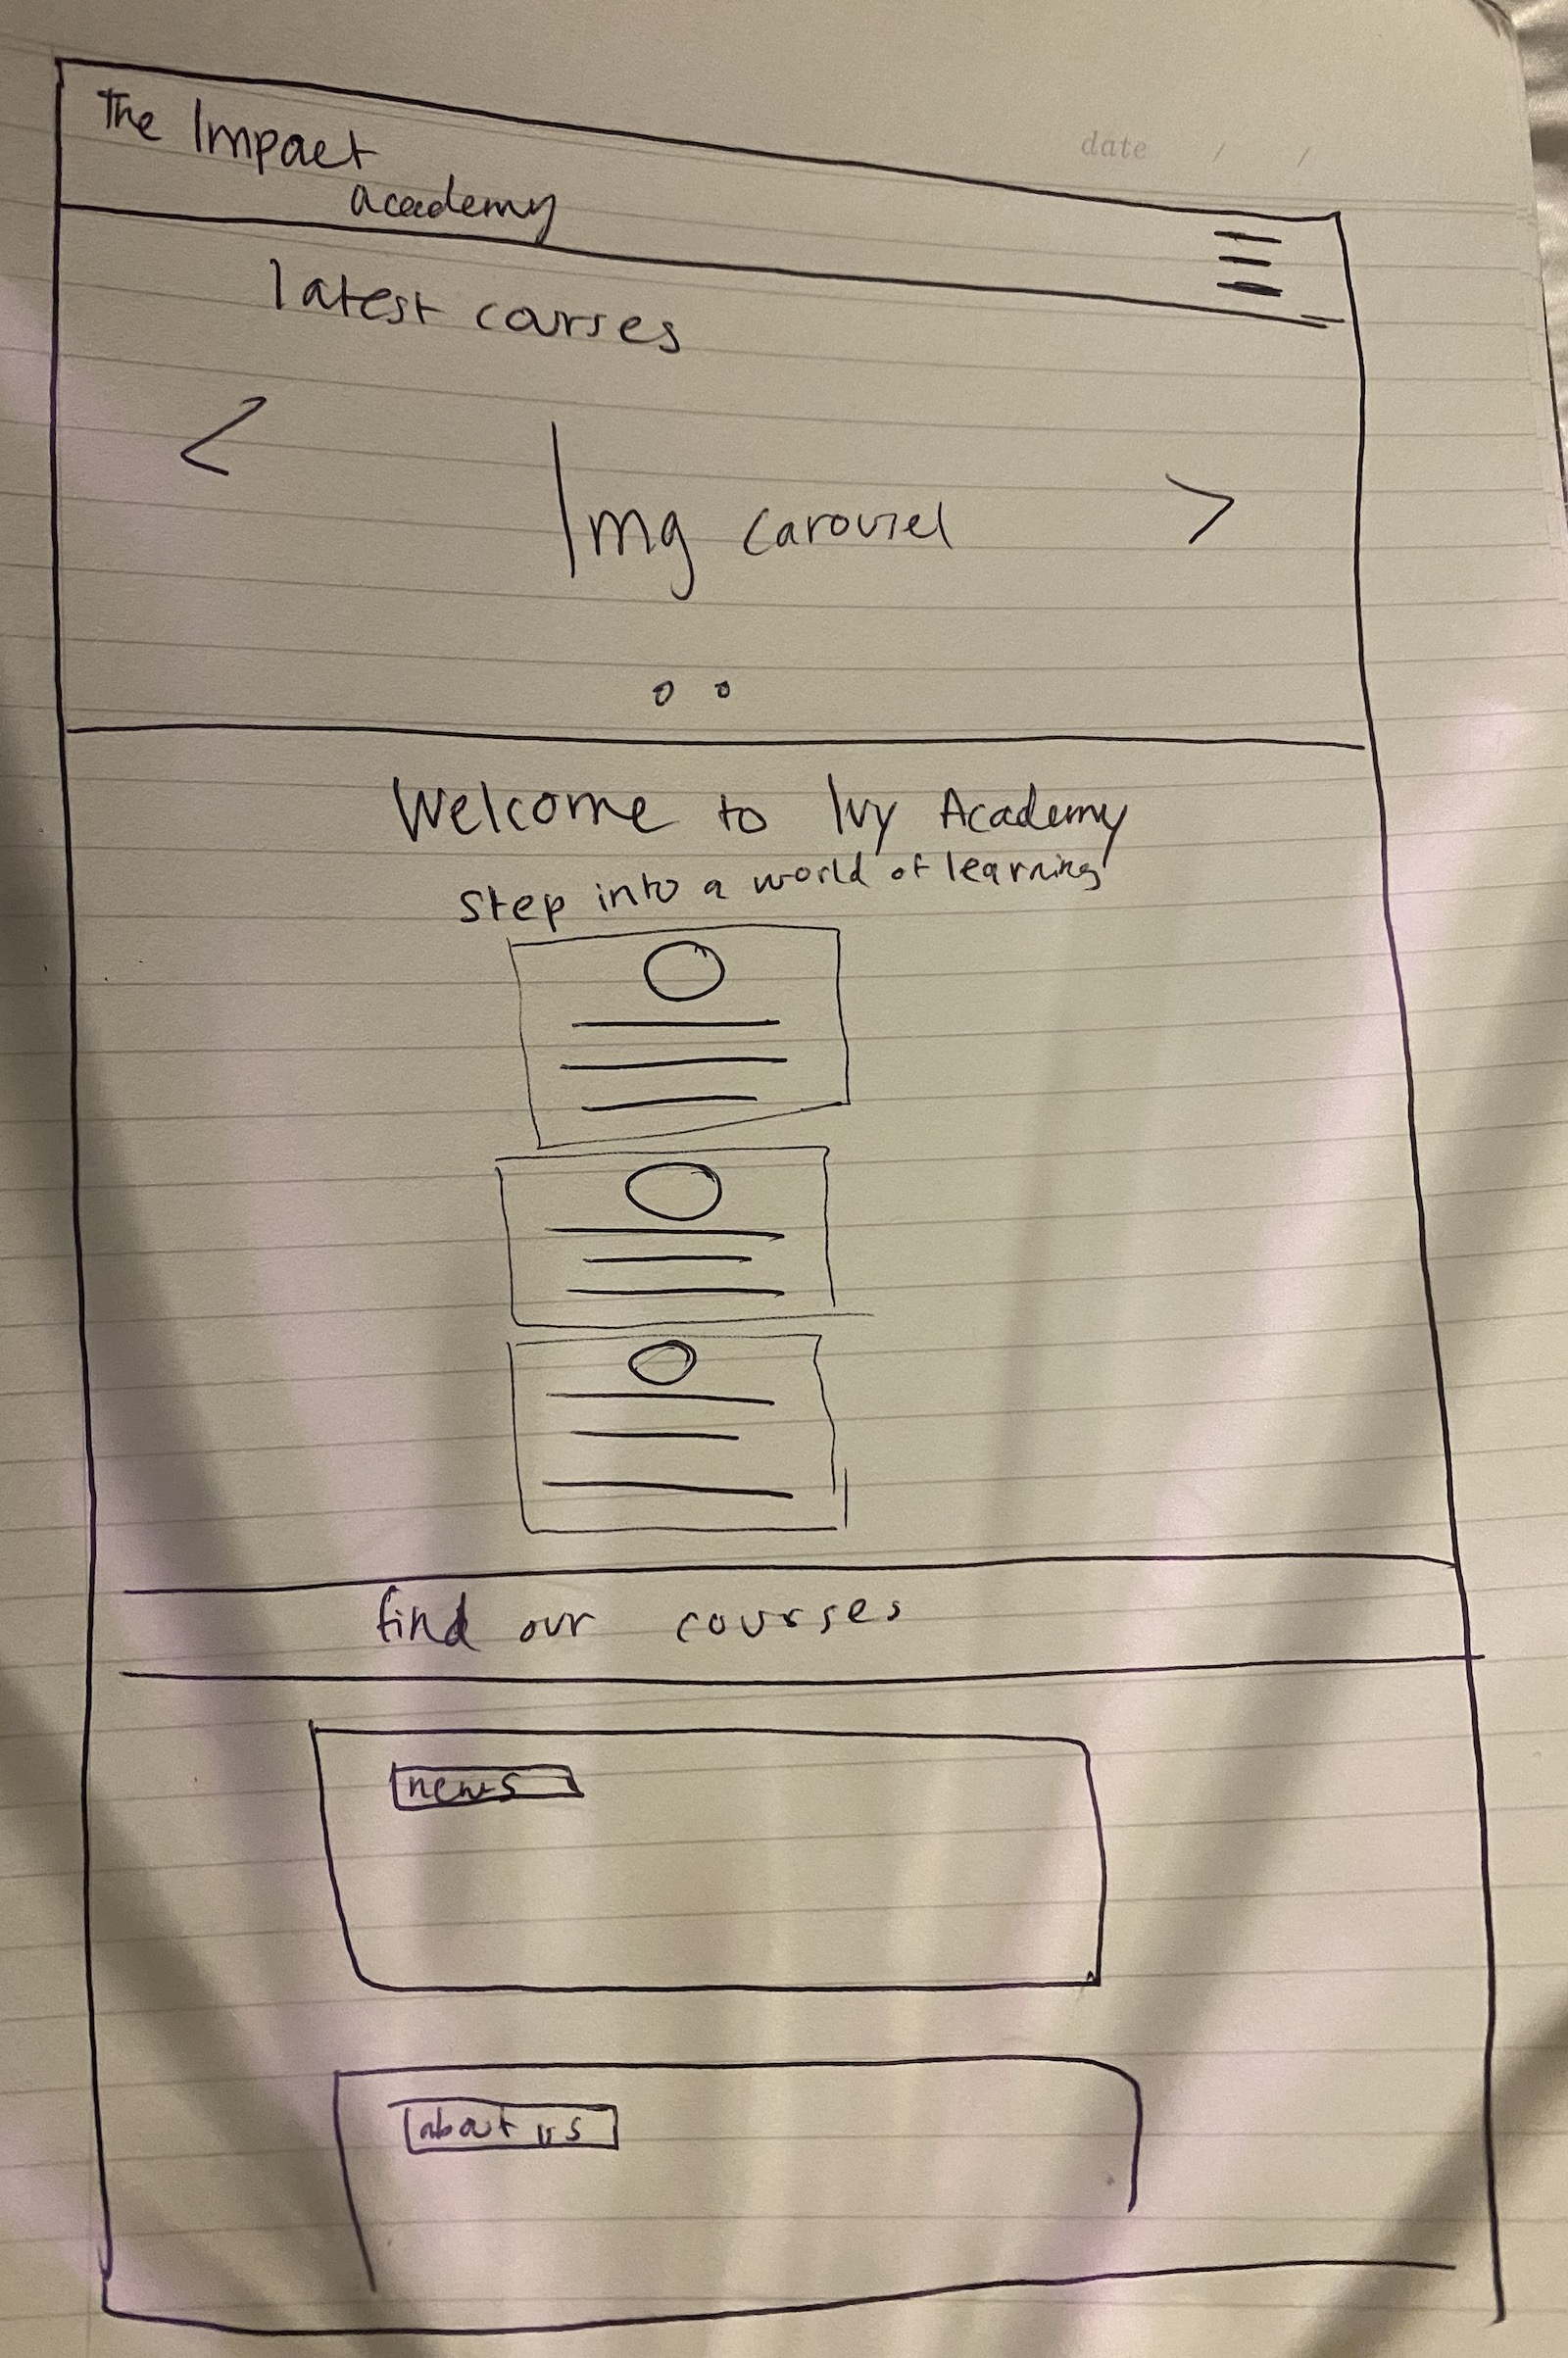 date / /
The Impact
academy
latest courses
< Img carousel >
Welcome to Ivy Academy
step into a world of learning
find our courses
news
about us